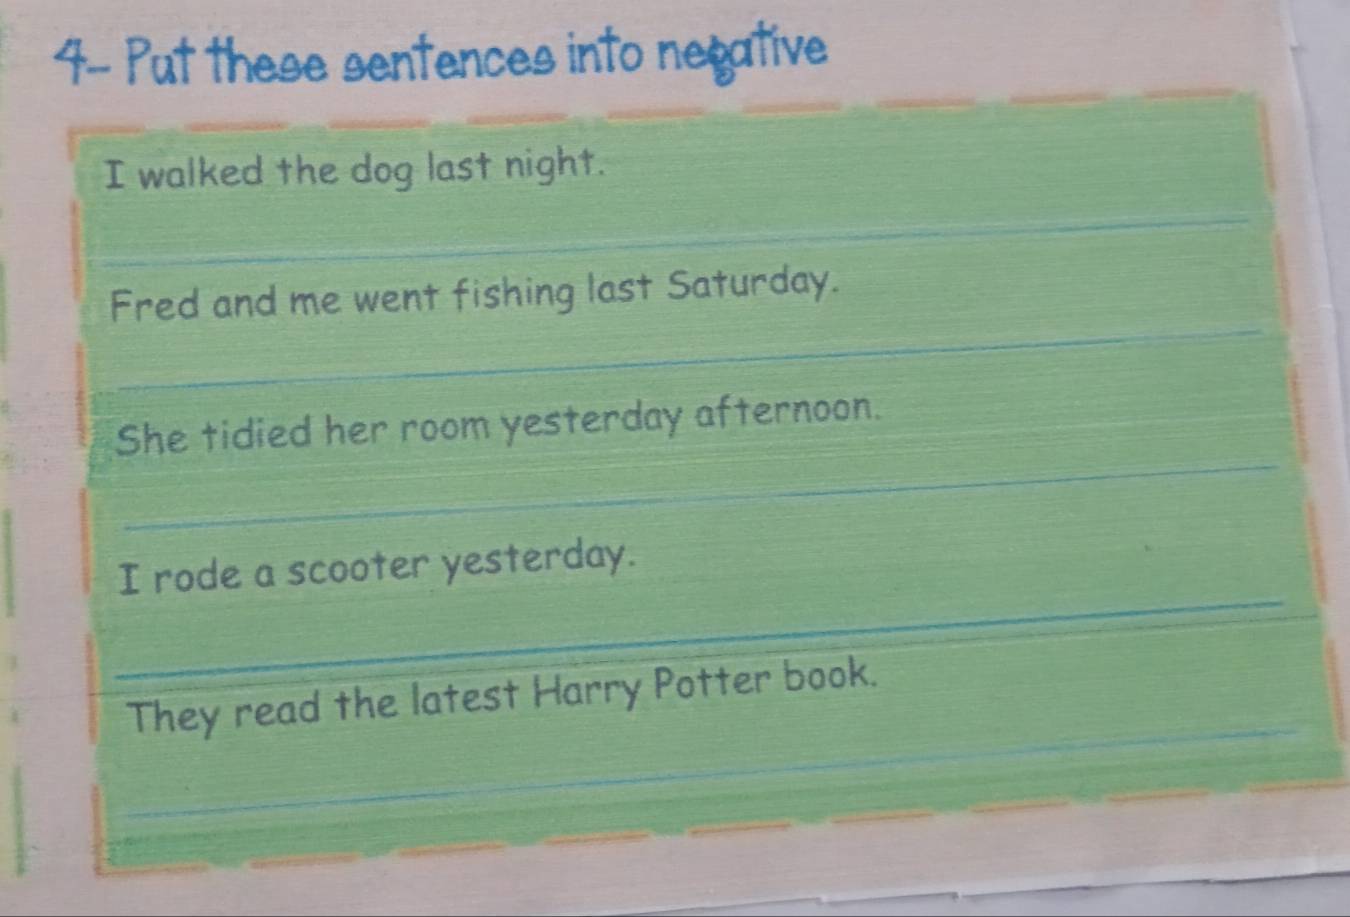 4- Put these sentences into negative
I walked the dog last night.
Fred and me went fishing last Saturday.
She tidied her room yesterday afternoon.
I rode a scooter yesterday.
They read the latest Harry Potter book.